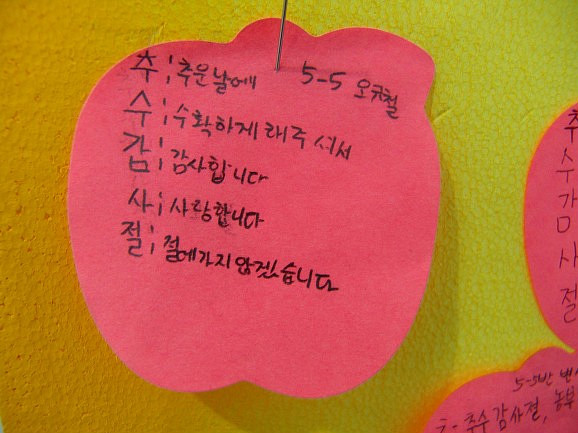 추; 추운날에 5-5 오규철
수; 수확하게 해주셔서
감; 감사합니다
사; 사랑합니다
절; 절에가지않겠습니다
추
수
감
사
절
5-5반
추수감사절, 농부